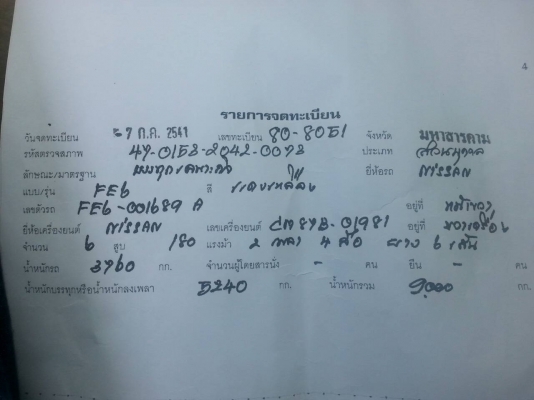 4
รายการจดทะเบียน
วันจดทะเบียน 27 ก.ค. 2541 เลขทะเบียน 80-8051 จังหวัด มหาสารคาม
รหัสตรวจสภาพ 47-0153-2042-0073 ประเภท ส่วนบุคคล
ลักษณะ/มาตรฐาน ยี่ห้อรถ NISSAN
แบบ/รุ่น FE6 สี
เลขตัวรถ FE6-001689 A อยู่ที่
ยี่ห้อเครื่องยนต์ NISSAN เลขเครื่องยนต์ CM87B-01981 อยู่ที่
จำนวน 6 สูบ 180 แรงม้า 2 เพลา 4 ล้อ ยาง 6 เส้น
น้ำหนักรถ 3760 กก. จำนวนผู้โดยสารนั่ง - คน ยืน - คน
น้ำหนักบรรทุกหรือน้ำหนักลงเพลา 5240 กก. น้ำหนักรวม 9,000 กก.